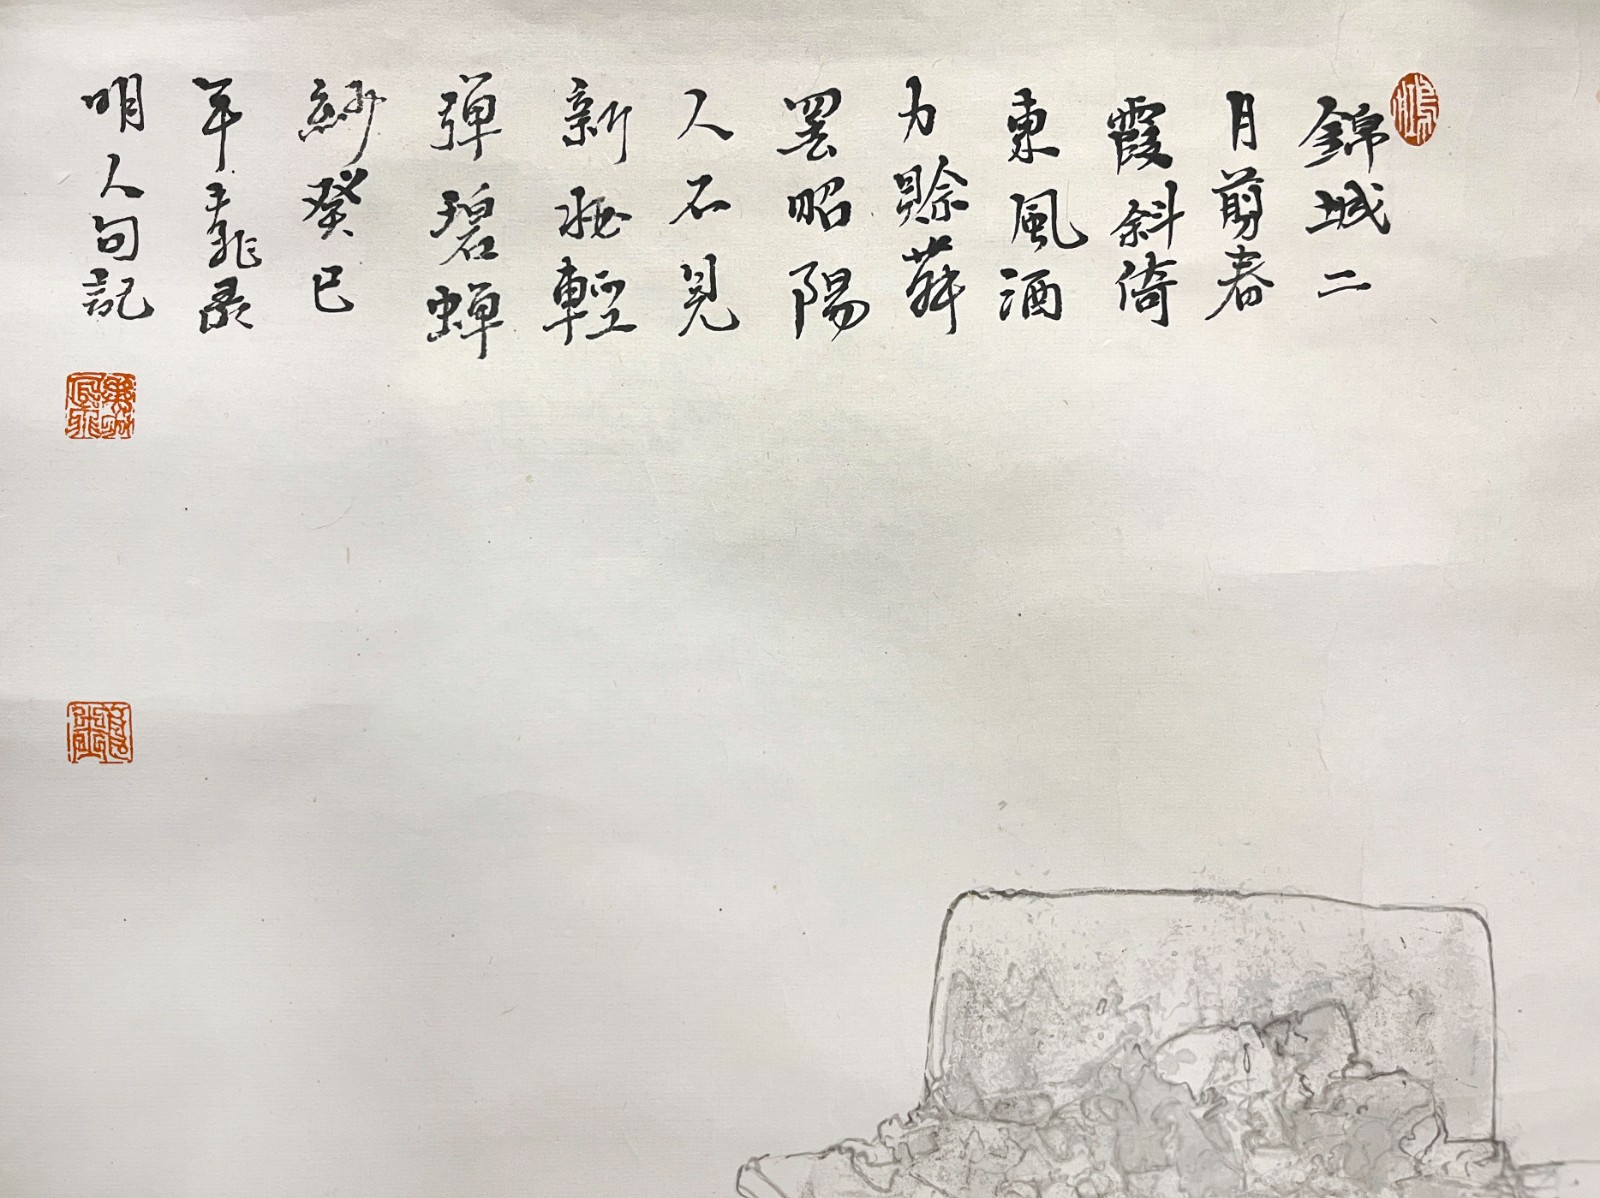 錦城二
月剪春
霞斜倚
東風酒
力賒舞
罷昭陽
人不見
新妝輕
彈碧蟬
紗癸巳
年飛錄
明人句記